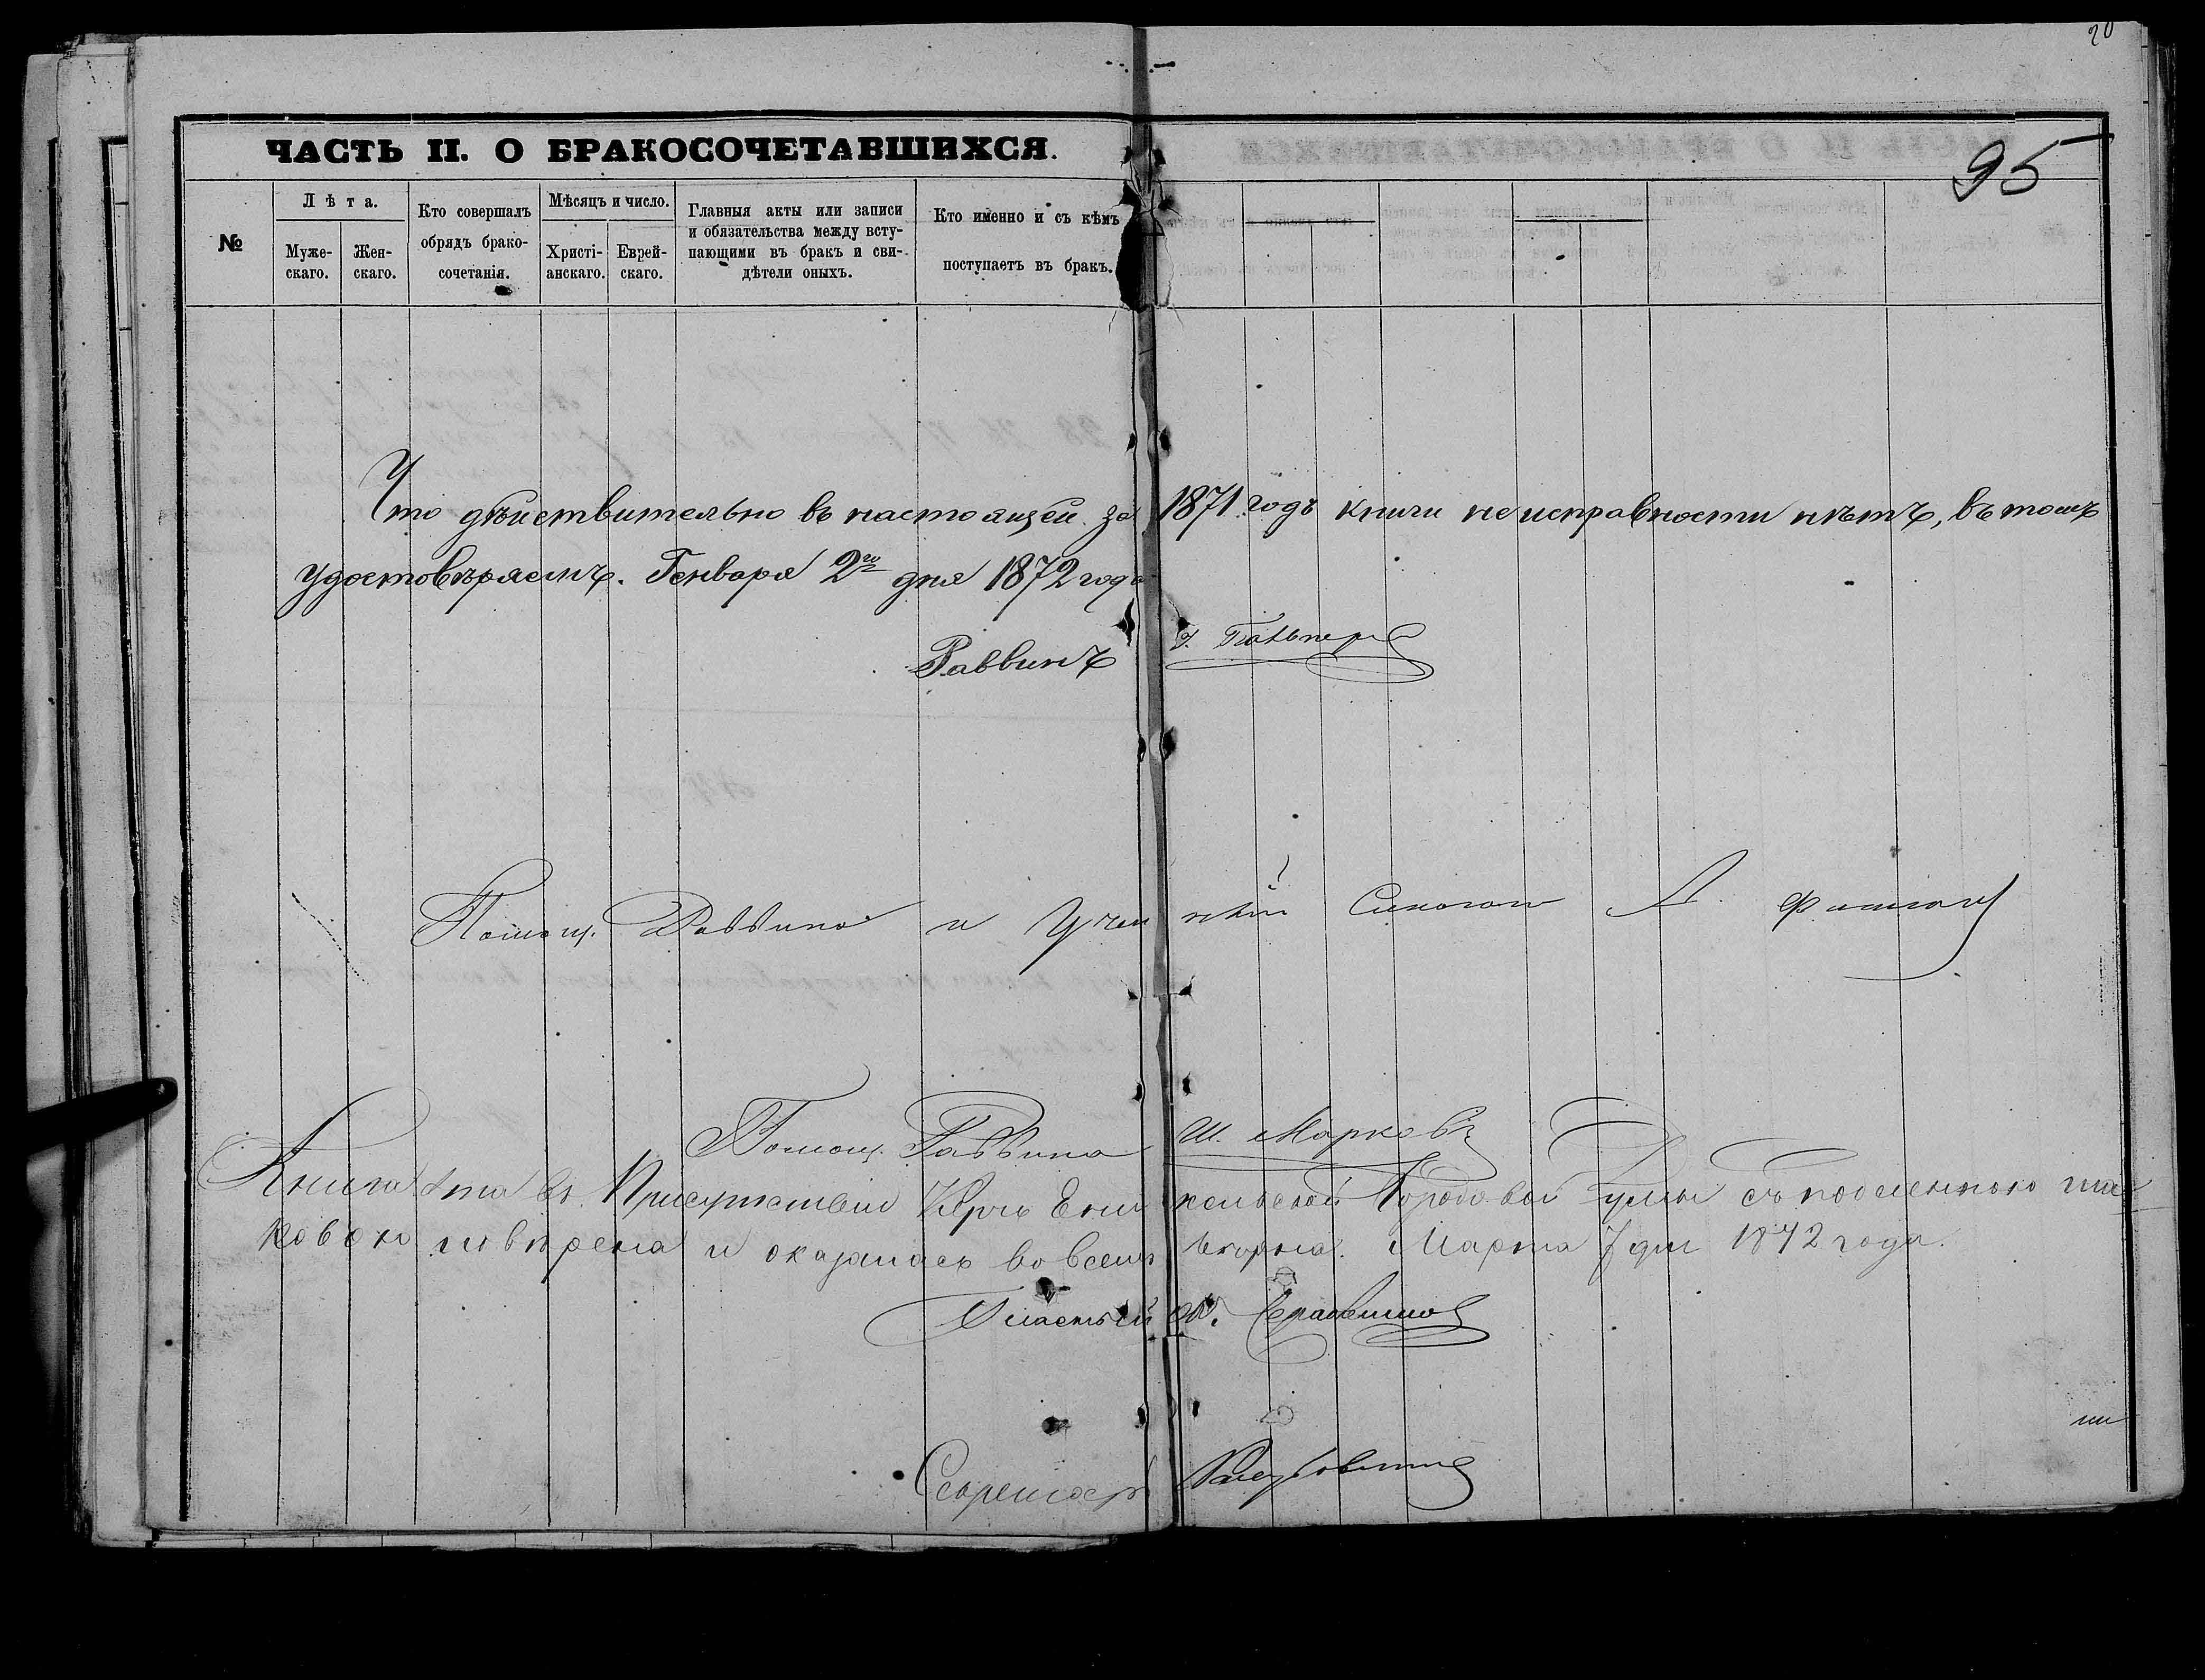 20
95
ЧАСТЬ II. О БРАКОСОЧЕТАВШИХСЯ.
№
Лѣта.
Муже-
скаго.
Жен-
скаго.
Кто совершалъ
обрядъ брако-
сочетанія.
Мѣсяцъ и число.
Христі-
анскаго.
Еврей-
скаго.
Главныя акты или записи
и обязательства между всту-
пающими въ бракъ и сви-
дѣтели оныхъ.
Кто именно и съ кѣмъ
поступаетъ въ бракъ.
Что дѣйствительно въ настоящей за 1871 годъ книги неисправности нѣтъ, въ томъ
удостовѣряемъ. Генваря 2го дня 1872 года
Раввинъ
Помощ. Раввина и Учен
Помощ. Раввина Ш. Марковъ
Книга эта въ Присутствіи Керчь Еникольской Городовой Думы съ подлинною та
ковою повѣрена и оказалась во всемъ вѣрна. Марта 7 дня 1872 года.
Гласный
Секретарь